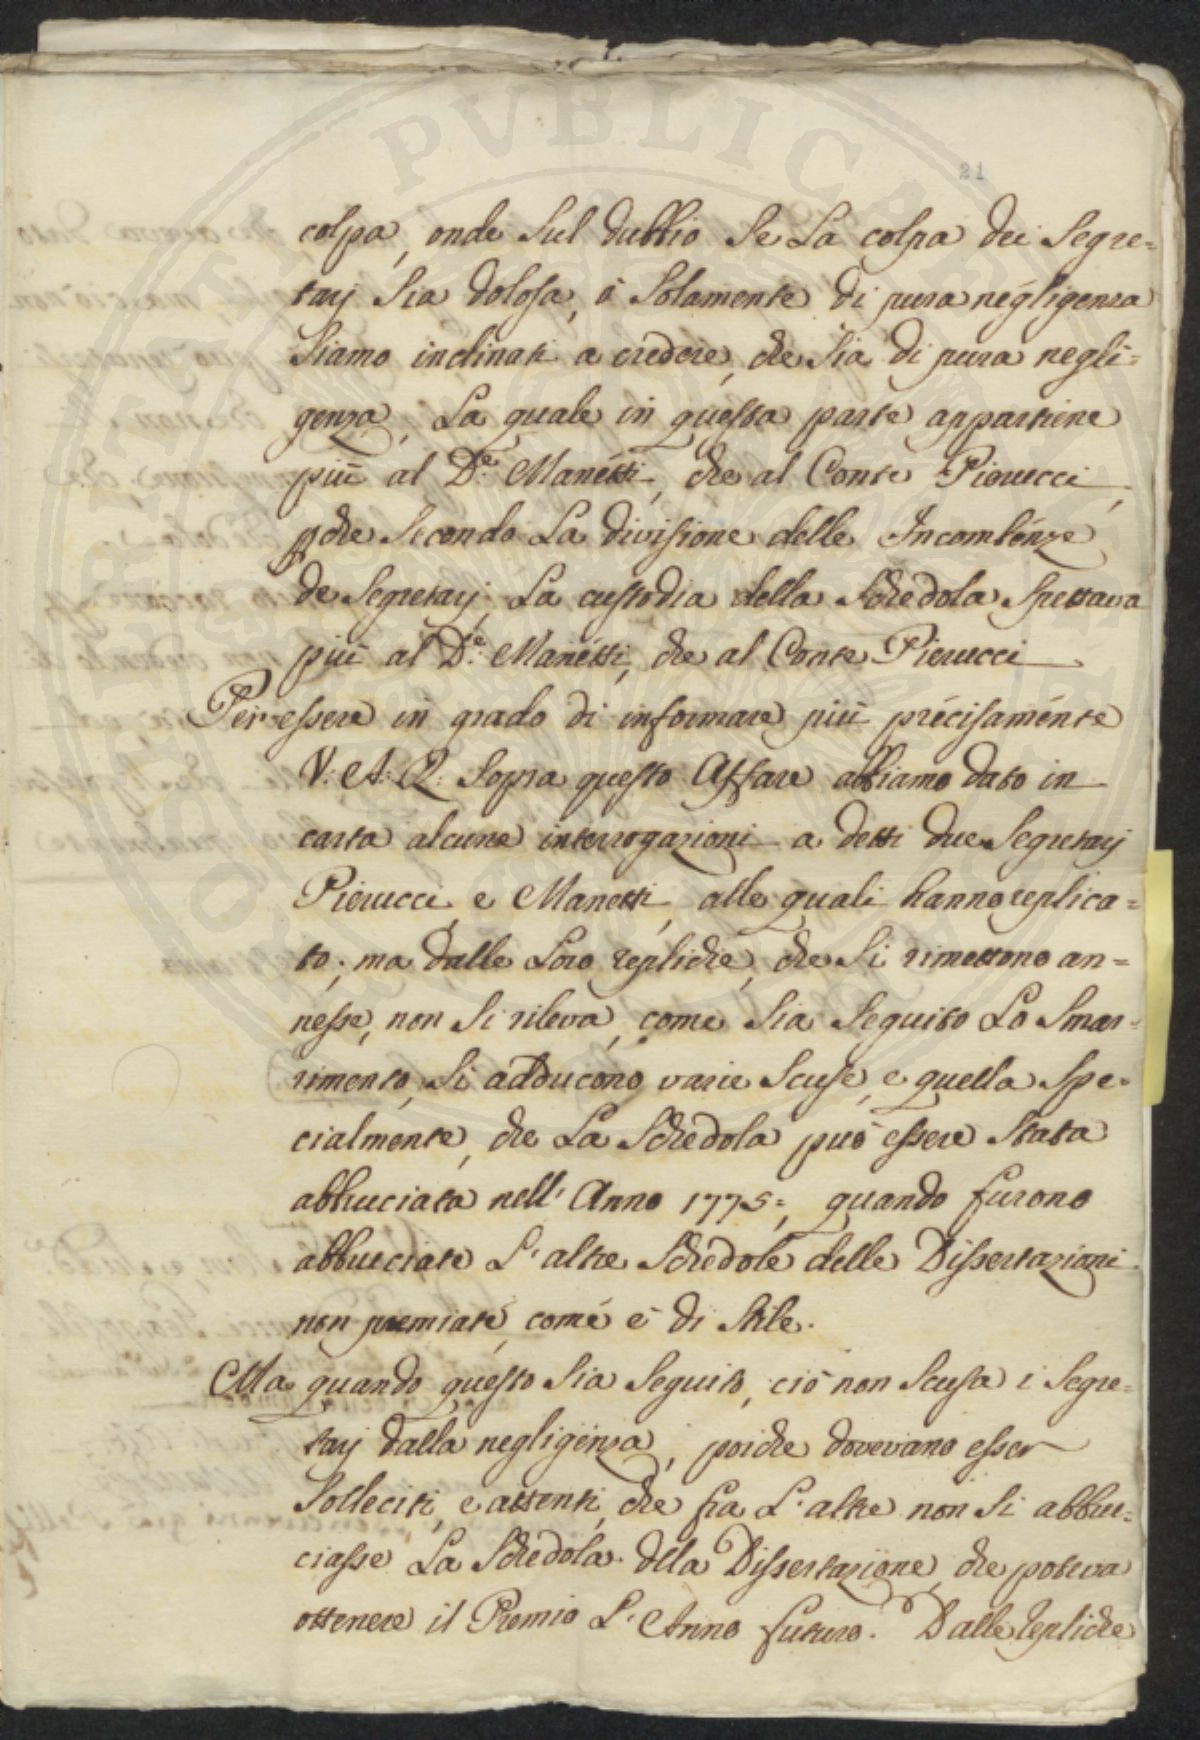 PVBLICAE
21
colpa, onde sul dubbio se la colpa dei Segre=
tarj sia dolosa, ò solamente di pura négligenza
siamo inclinati a credere, che sia di pura negli=
genza, La quale in questa parte appartiene
più al D.e Manétti, che al Conte Pierucci,
pche secondo La divisione delle Incombénze
de Segretarj, La custodia della Schedola spettava
più al D.e Manétti, che al Conte Pierucci
Per essere in grado di informare più précisaménte
V. A. R. sopra questo Affare abbiamo dato in
carta alcune interrogazioni a detti due Segretarj
Pierucci, e Manetti, alle quali hanno replica=
to; ma dalle Loro repliche, che si rimettono an=
nesse, non si rileva, come sia seguito Lo smar=
rimento, si adducono varie scuse, e quella spe=
cialmente, che La Schedola può essere stata
abbruciata nell' Anno 1775=, quando furono
abbruciate L' altre Schedole delle Dissertazioni
non premiate, come è di stile.
Ma quando questo sia seguito, ciò non scusa i Segre=
tarj dalla negligénza, poiche dovevano esser
solleciti, e attenti, che fra L' altre non si abbru=
ciasse La Schedola della Dissertazione, che poteva
ottenere il Premio L' Anno futuro. Dalle repliche